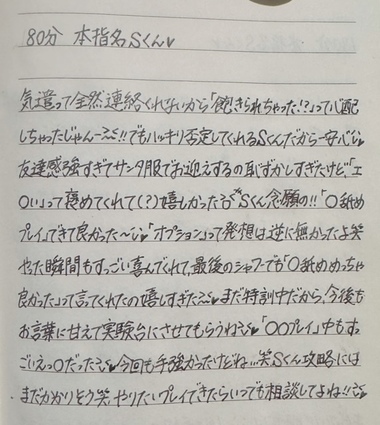 80分 本指名Sくん♥
気遣って全然連絡くれないから「飽きられちゃった!?」って心配
しちゃったじゃんー!!でもハッキリ否定してくれるSくんだから一安心
友達感強すぎてサンタ服でお迎えするの恥ずかしすぎたけど「エ
〇い」って褒めてくれて(?)嬉しかった Sくん念願の!!「〇舐め
プレイ」できて良かった〜 「オプション」って発想は逆に無かったよ笑
やった瞬間もすっごい喜んでくれて、最後のシャワーでも「〇舐めめっちゃ
良かった」って言ってくれたの嬉しすぎた まだ特訓中だから、今後も
お言葉に甘えて実験台にさせてもらうね♥「〇〇プレイ」中もす
ごいえっ〇だった 今回も手強かったけどね…笑Sくん攻略には
まだかかりそう笑 やりたいプレイできたらいつでも相談してよね!!